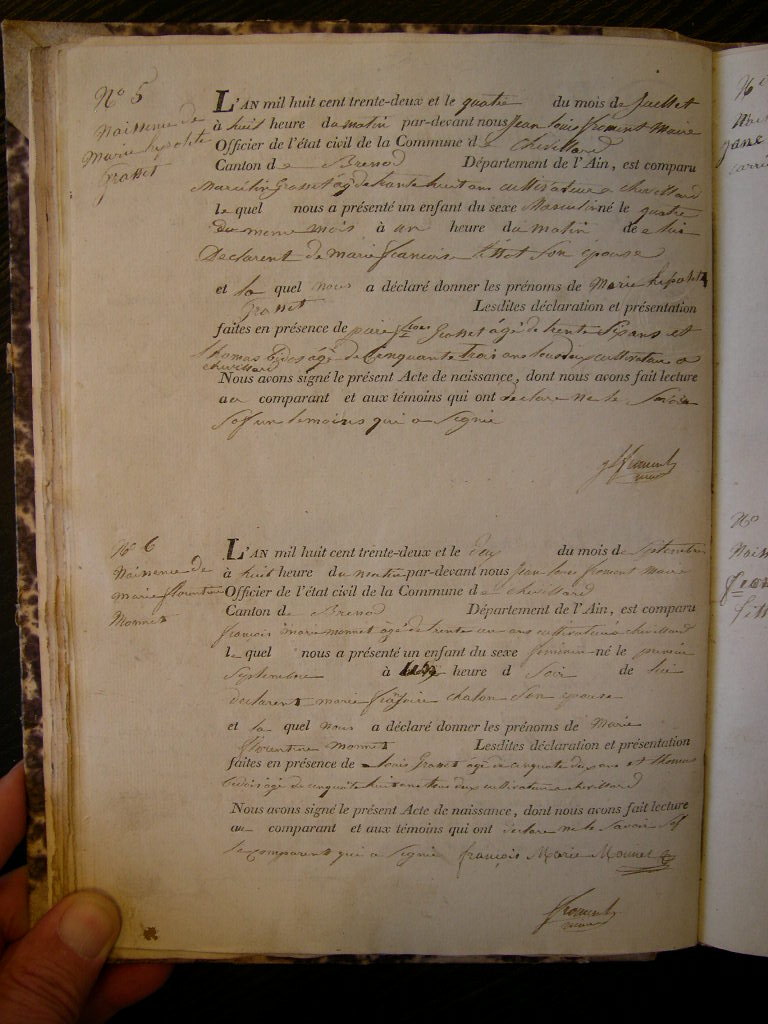 N° 5
Naissence de
Marie hipolite
Grasset
L'AN mil huit cent trente-deux et le quatre du mois de Juillet
à huit heure du matin par-devant nous Jean Louis froment Maire
Officier de l'état civil de la Commune de Chevillard
Canton de Brenod Département de l'Ain, est comparu
Marcelin Grasset agé de trante huit ans cultivateur a chevillard
le quel nous a présenté un enfant du sexe Masculin né le quatre
du meme mois à un heure du matin de lui
Declarent de marie francoise Tissot son épouse
et la quel nous a déclaré donner les prénoms de Marie hipolite
Grasset Lesdites déclaration et présentation
faites en présence de Grasset âgé de trente ans et
thomas âgé de Cinquante trois ans tous deux cultivateur a
chevillard
Nous avons signé le présent Acte de naissance, dont nous avons fait lecture
au comparant et aux témoins qui ont declare ne le Savoir
Sof un temoins qui a Signie
froment
N° 6
Naissence de
marie florentine
Monnet
L'AN mil huit cent trente-deux et le deux du mois de Septembre
à huit heure du matin par-devant nous Jean Louis froment Maire
Officier de l'état civil de la Commune de chevillard
Canton de Brenod Département de l'Ain, est comparu
françois marie monnet âgé de trente ans cultivateur a chevillard
le quel nous a présenté un enfant du sexe feminin né le premier
Septembre à heure d Soir de lui
declarent marie chalon Son épouse
et la quel nous a déclaré donner les prénoms de Marie
florentine Monnet Lesdites déclaration et présentation
faites en présence de Louis Grasset âgé de cinquante deux ans et thomas
âgé de cinquante tous deux cultivateur a chevillard
Nous avons signé le présent Acte de naissance, dont nous avons fait lecture
au comparant et aux témoins qui ont declare ne le Savoir Sof
le comparent qui a Signie françois Marie Monnet
froment